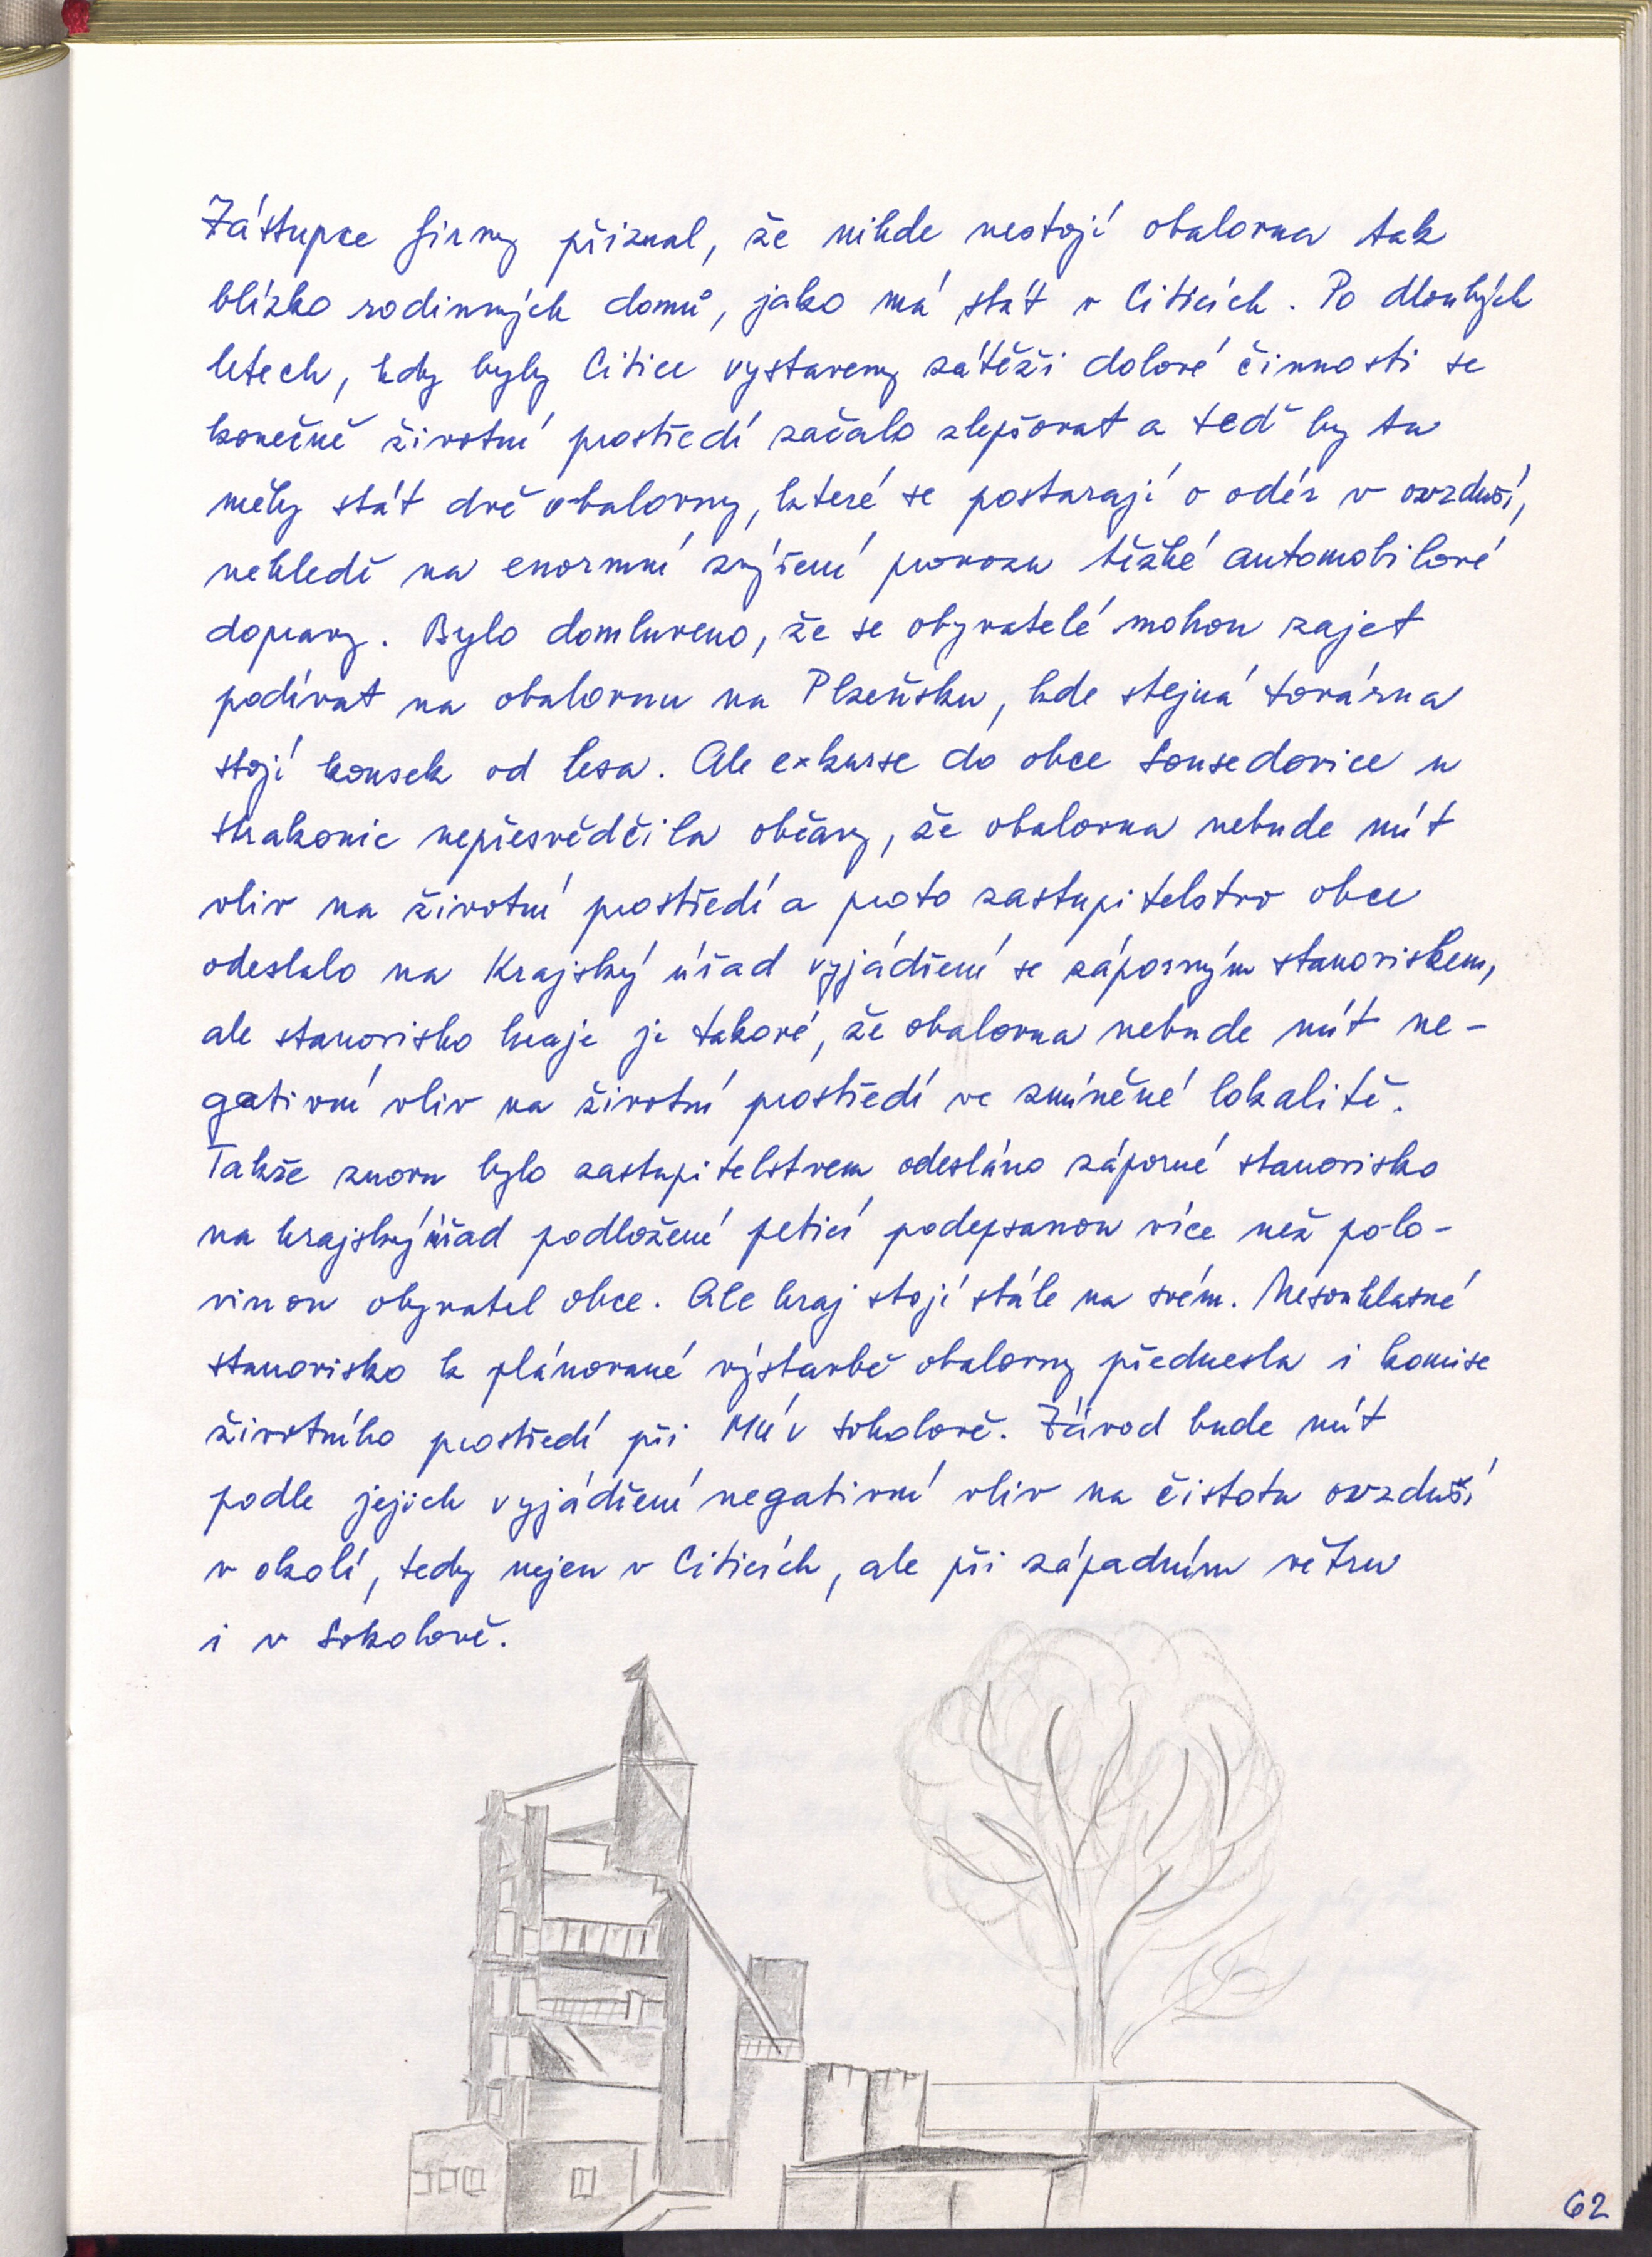 Zástupce firmy přiznal, že nikde nestojí obalovna tak
blízko rodinných domů, jako má stát v Citicích. Po dlouhých
letech, kdy byly Citice vystaveny zátěži dolové činnosti se
konečně životní prostředí začalo zlepšovat a teď by tu
měly stát dvě obalovny, které se postarají o odér v ovzduší,
nehledě na enormní zvýšení provozu těžké automobilové
dopravy. Bylo domluveno, že se obyvatelé mohou zajet
podívat na obalovnu na Plzeňsku, kde stejná továrna
stojí kousek od lesa. Ale exkurse do obce Sousedovice u
Strakonic nepřesvědčila občany, že obalovna nebude mít
vliv na životní prostředí a proto zastupitelstvo obce
odeslalo na Krajský úřad vyjádření se záporným stanoviskem,
ale stanovisko kraje je takové, že obalovna nebude mít ne-
gativní vliv na životní prostředí ve zmíněné lokalitě.
Takže znovu bylo zastupitelstvem odesláno záporné stanovisko
na krajský úřad podložené peticí podepsanou více než polo-
vinou obyvatel obce. Ale kraj stojí stále na svém. Nesouhlasné
stanovisko k plánované výstavbě obalovny přednesla i komise
životního prostředí při MÚ v Sokolově. Závod bude mít
podle jejich vyjádření negativní vliv na čistotu ovzduší
v okolí, tedy nejen v Citicích, ale při západním větru
i v Sokolově.
62